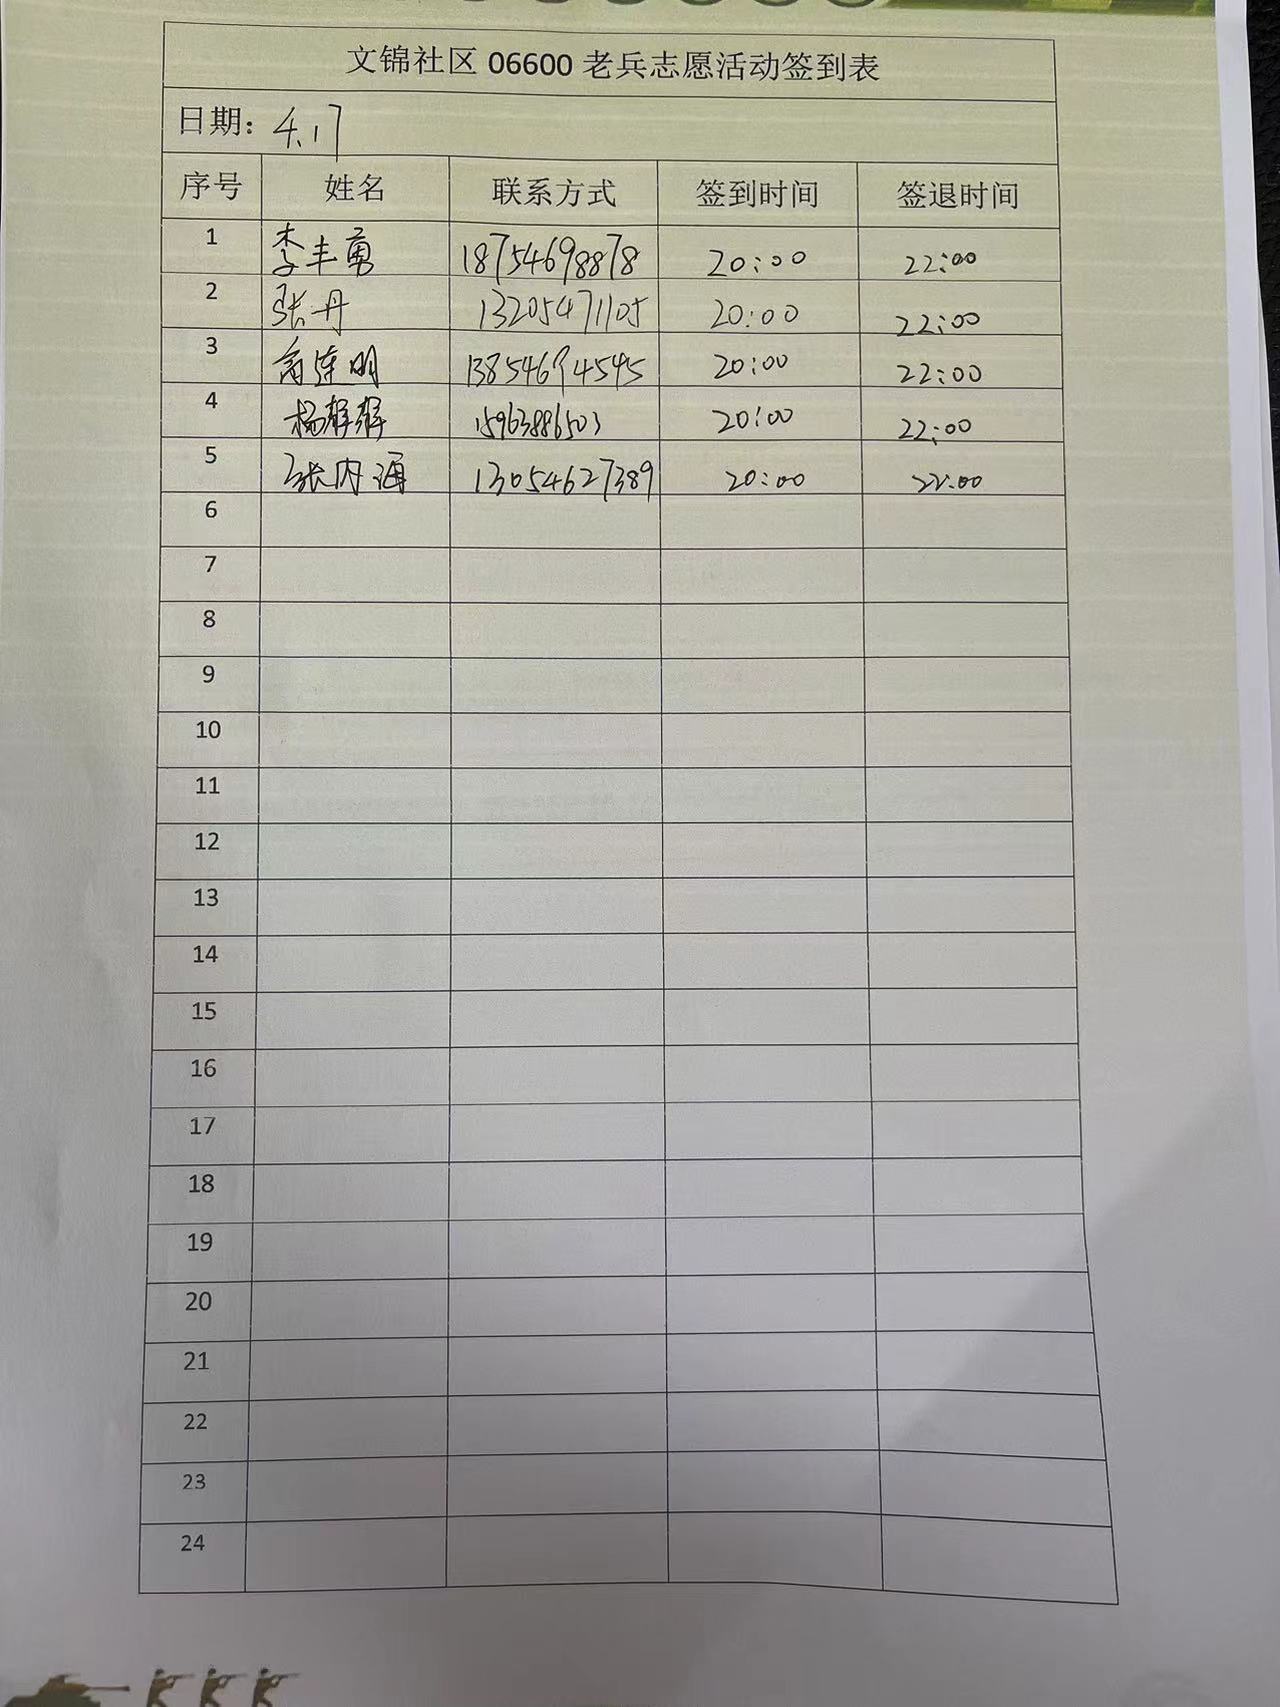 文锦社区 06600 老兵志愿活动签到表
日期: 4.17
序号 姓名 联系方式 签到时间 签退时间
1 李丰勇 18754698878 20:00 22:00
2 张丹 13205471105 20:00 22:00
3 连明 13854694545 20:00 22:00
4 杨 15963886503 20:00 22:00
5 张内海 13054627389 20:00 22:00
6
7
8
9
10
11
12
13
14
15
16
17
18
19
20
21
22
23
24